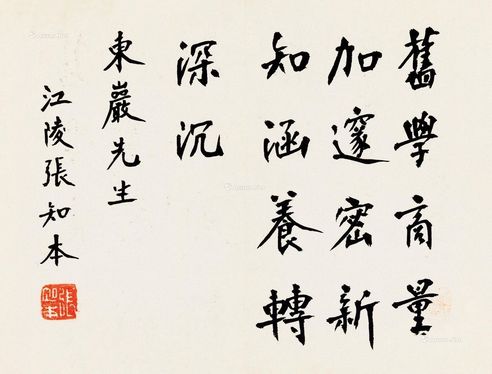 舊學商量
加邃密新
知涵養轉
深沉
東巖先生
江陵張知本
張知本